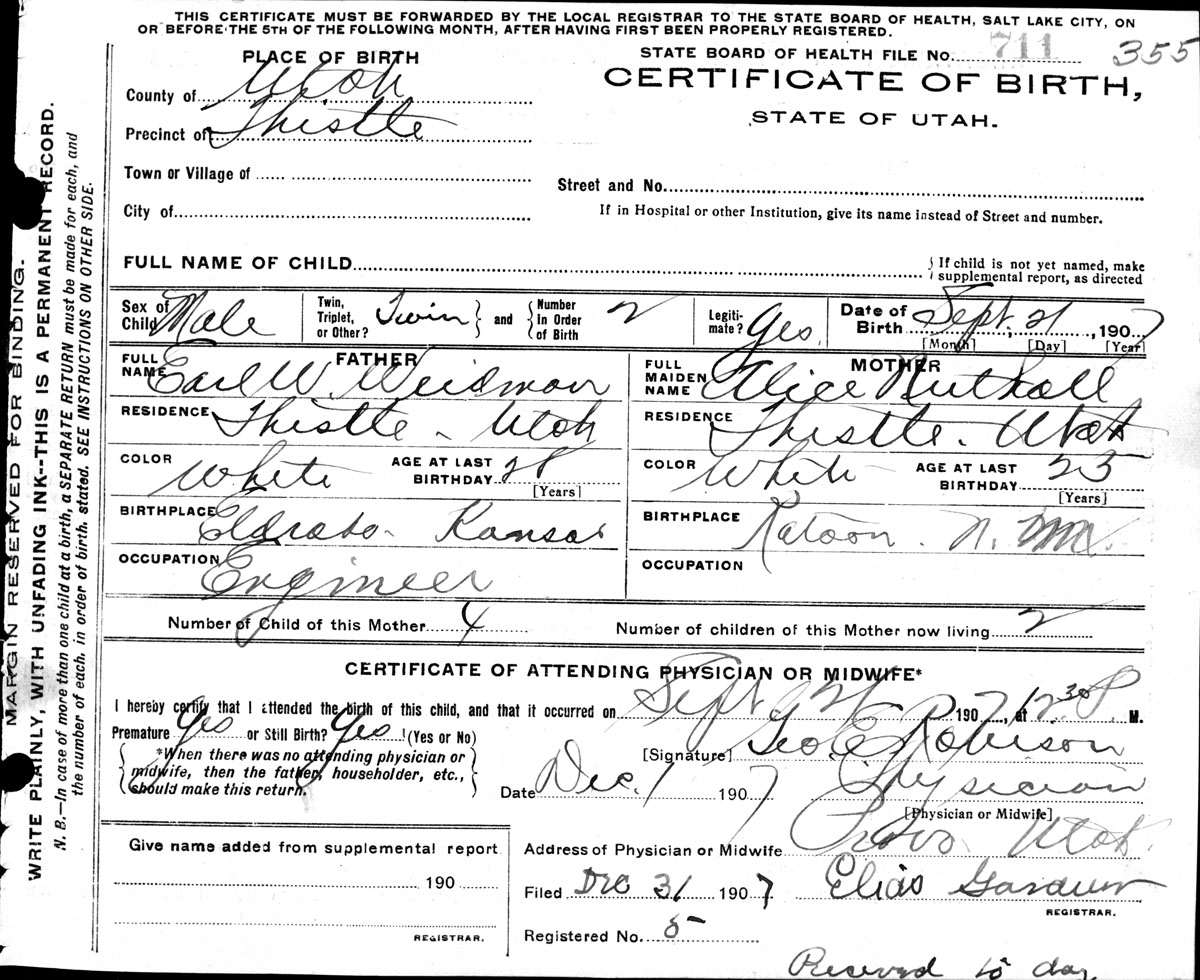 THIS CERTIFICATE MUST BE FORWARDED BY THE LOCAL REGISTRAR TO THE STATE BOARD OF HEALTH, SALT LAKE CITY, ON
OR BEFORE THE 5TH OF THE FOLLOWING MONTH, AFTER HAVING FIRST BEEN PROPERLY REGISTERED.
PLACE OF BIRTH
STATE BOARD OF HEALTH FILE No. 711 355
CERTIFICATE OF BIRTH,
STATE OF UTAH.
County of Utah
Precinct of Thistle
Town or Village of
Street and No.
City of
If in Hospital or other Institution, give its name instead of Street and number.
FULL NAME OF CHILD
If child is not yet named, make
supplemental report, as directed
Sex of Child Male
Twin, Triplet, or Other? Twin and Number In Order of Birth 2
Legiti-mate? Yes
Date of Birth Sept. 21, 1907
[Month] [Day] [Year]
FATHER
FULL NAME Earl W. Weidman
RESIDENCE Thistle - Utah
COLOR White AGE AT LAST BIRTHDAY 28
[Years]
BIRTHPLACE Eldrado - Kansas
OCCUPATION Engineer
MOTHER
FULL MAIDEN NAME Alice Nuthall
RESIDENCE Thistle - Utah
COLOR White AGE AT LAST BIRTHDAY 25
[Years]
BIRTHPLACE Ratoon. N. Mex.
OCCUPATION
Number of Child of this Mother 4
Number of children of this Mother now living 2
CERTIFICATE OF ATTENDING PHYSICIAN OR MIDWIFE*
I hereby certify that I attended the birth of this child, and that it occurred on Sept 21 1907, at 12 30 P. M.
Premature Yes or Still Birth? Yes (Yes or No)
*When there was no attending physician or
midwife, then the father, householder, etc.,
should make this return.
[Signature] Geo E Robison
Date Dec. 1 1907 Physician
[Physician or Midwife]
Address of Physician or Midwife Provo Utah.
Filed Dec 31 1907 Elias Gardner
REGISTRAR.
Registered No. 5
Received to day
Give name added from supplemental report
190
REGISTRAR.
MARGIN RESERVED FOR BINDING.
WRITE PLAINLY, WITH UNFADING INK--THIS IS A PERMANENT RECORD.
N. B.—In case of more than one child at a birth, a SEPARATE RETURN must be made for each, and
the number of each, in order of birth, stated. SEE INSTRUCTIONS ON OTHER SIDE.